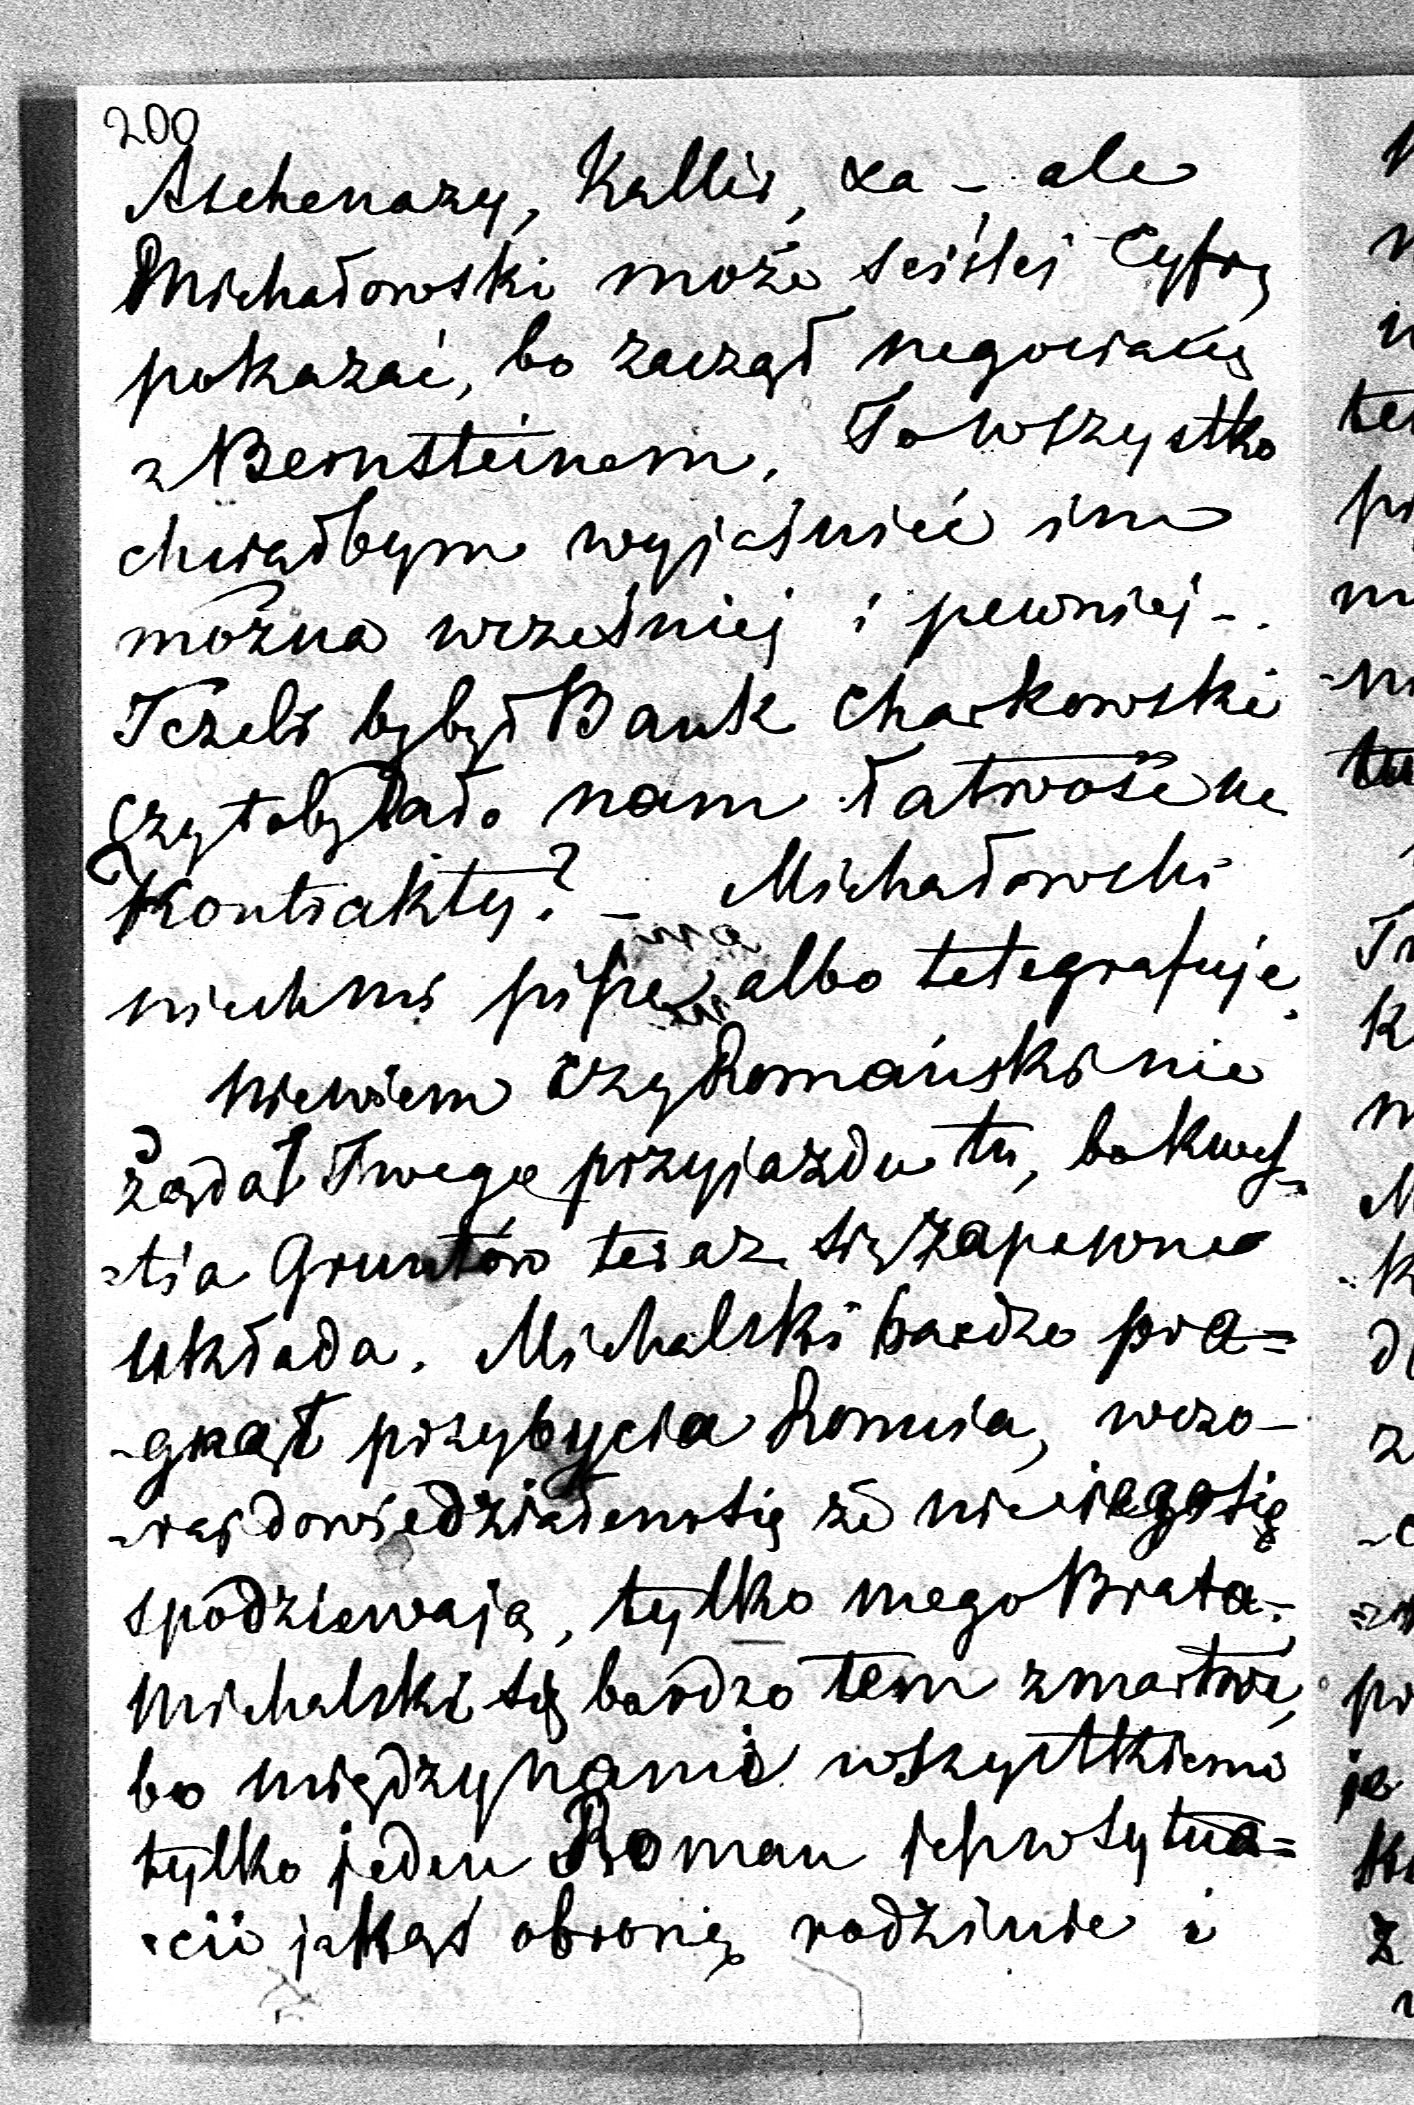 200
Aschenazy, Kallir, xa - ale
Michałowski może ściślej Cyfrę
pokazać, bo zaczął negociację
z Bernsteinem. To wszystko
chciałbym wyjaśnić im
można wcześniej i pewniej -.
Jeżeli byłby Bank Charkowski
czy toby dało nam łatwość na
Kontrakty? - Michałowski
niech mi pisze albo telegrafuje.
Niewiem czy Romański nie
żądał Twego przyjazdu tu, bo kwes-
-tia Gruntów teraz się zapewne
układa. Michalski bardzo pra=
-gnął przybycia Romcia, wczo-
-raj dowiedziałem się że nie jego się
spodziewają, tylko mego Brata.
Michalski się bardzo tem zmartwi,
bo między nami wszystkiemi
tylko jeden Roman jest w sytua=
-cii jakąś obronię rodzinie i